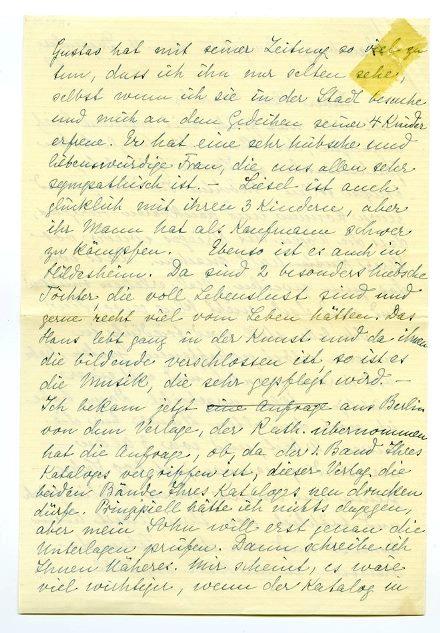 Gustav hat mit seiner Zeitung so viel zu
tun, dass ich ihn nur selten sehe,
selbst wenn ich sie in der Stadt besuche
und mich an dem Gedeihen seiner 4 Kinder
erfreue. Er hat eine sehr hübsche und
liebenswürdige Frau, die uns allen sehr
sympathisch ist. – Liesel ist auch
glücklich mit ihren 3 Kindern, aber
ihr Mann hat als Kaufmann schwer
zu kämpfen. Ebenso ist es auch in
Hildesheim. Da sind 2 besonders hübsche
Töchter die voll Lebenslust sind und
gerne recht viel vom Leben hätten. Das
Haus lebt ganz in der Kunst und da ihnen
die bildende verschlossen ist so ist es
die Musik, die sehr gepflegt wird. –
Ich bekam jetzt eine Anfrage aus Berlin
von dem Verlage, der Kath. übernommen
hat die Anfrage, ob, da der 1. Band Ihres
Katalogs vergriffen ist, dieser Verlag die
beiden Bände Ihres Katalogs neu drucken
dürfe. Prinzipiell hätte ich nichts dagegen,
aber mein Sohn will erst genau die
Unterlagen prüfen. Dann schreibe ich
Ihnen Näheres. Mir scheint, es wäre
viel wichtiger, wenn der Katalog in